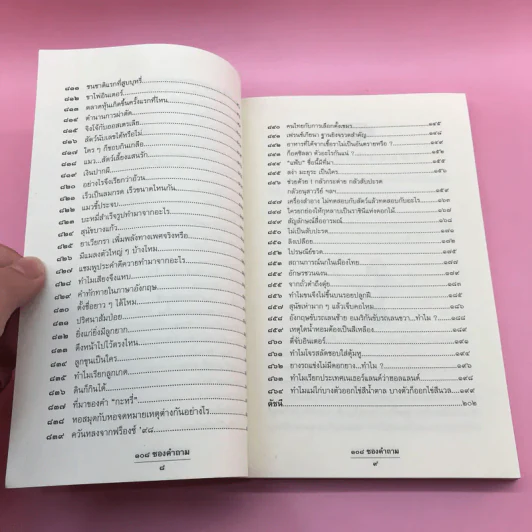 ๘๑๑ ชนชาติแรกที่สูบบุหรี่
๘๑๒ ชาไฟอินเตอร์
๘๑๓ ตลาดหุ้นเกิดขึ้นครั้งแรกที่ไหน
๘๑๔ ตำนานการผ่าตัด
๘๑๕ จิงโจ้กับออสเตรเลีย
๘๑๖ สัตว์นับเลขได้หรือไม่
๘๑๗ ใคร ๆ ก็ชอบกินเกลือ
๘๑๘ แมว...สัตว์เลี้ยงแสนรัก
๘๑๙ เงินปากผี
๘๒๐ อย่างไรจึงเรียกว่าอ้วน
๘๒๑ เร็วเป็นลมกรด เร็วขนาดไหนกัน
๘๒๒ แมวขี้ประจบ
๘๒๓ บะหมี่สำเร็จรูปทำมาจากอะไร
๘๒๔ สุนัขบางแก้ว
๘๒๕ ยาเรียกรา เพิ่มพลังทางเพศจริงหรือ
๘๒๖ มีแมลงตัวใหญ่ ๆ บ้างไหม
๘๒๗ แชมพูประคำดีควายทำมาจากอะไร
๘๒๘ ทำไมเสียงจึงแหบ
๘๒๙ คำทักทายในภาษาอังกฤษ
๘๓๐ ตั้งชื่อยาว ๆ ได้ไหม
๘๓๑ ปริศนาส้มป่อย
๘๓๒ ยิ่งแก่ยิ่งมีลูกยาก
๘๓๓ ดึงหน้าไปไว้ตรงไหน
๘๓๔ ลูกขุนเป็นใคร
๘๓๕ ทำไมเรียกลูกเกด
๘๓๖ ดินก็กินได้
๘๓๗ ที่มาของคำ "กะหรี่"
๘๓๘ หอสมุดกับหอจดหมายเหตุต่างกันอย่างไร
๘๓๙ ควันหลงจากฟร็องซ์ '๙๘
๑๐๘ ซองคำถาม
๘
๘๔๐ คนไทยกับการเลือกตั้งเขมร ๑๔๕
๘๔๑ เฟรนช์เกียนา ฐานยิงจรวดสำคัญ ๑๔๘
๘๔๒ อาหารที่ได้จากเชื้อราไม่เป็นอันตรายหรือ ?
๘๔๓ ก็อดซิลลา ตัวอะไรกันแน่ ?
๘๔๔ "แฟ้บ" ชื่อนี้มีที่มา
๘๔๕ สง่า มะยุระ เป็นใคร ๑๕๖
๘๔๖ ช่วยด้วย ! กลัวกระต่าย กลัวสับปะรด
กลัวอนุสาวรีย์ ฯลฯ ๑๕๙
๘๔๗ เครื่องสำอาง ไม่ทดสอบกับสัตว์แล้วทดสอบกับอะไร ๑๖๓
๘๔๘ ใครยกย่องให้กุหลาบเป็นราชินีแห่งดอกไม้ ๑๖๘
๘๔๙ สัญลักษณ์สื่ออารมณ์
๘๕๐ ไม่เป็นสับปะรด
๘๕๑ ลิงเปลือย
๘๕๒ ไปรษณีย์ขวด
๘๕๓ สถานการณ์นกในเมืองไทย
๘๕๔ อักษรชวนฉงน
๘๕๕ จากถั่วดำถึงตุ๋ย
๘๕๖ ทำไมขนจึงไม่ขึ้นบนรอยปลูกฝี
๘๕๗ สุนัขเห่ามาก ๆ แล้วเจ็บคอไหม
๘๕๘ อังกฤษขับรถเลนซ้าย อเมริกันขับรถเลนขวา...ทำไม ?
๘๕๙ เหตุใดน้ำหอมต้องเป็นสีเหลือง
๘๖๐ ตี่จับอินเตอร์
๘๖๑ ทำไมโจรสลัดชอบใส่ตุ้มหู
๘๖๒ ยางรถแข่งไม่มีดอกยาง...ทำไม ?
๘๖๓ ทำไมเรียกประเทศเนเธอร์แลนด์ว่าฮอลแลนด์
๘๖๔ ทำไมแม่ไก่บางตัวออกไข่สีน้ำตาล บางตัวก็ออกไข่สีนวล ๑๙๙
ดัชนี ๒๐๒
๑๐๘ ซองคำถาม
๙